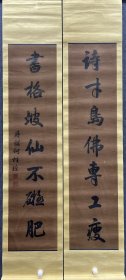 詩才島佛專工瘦
書格坡仙不礙肥